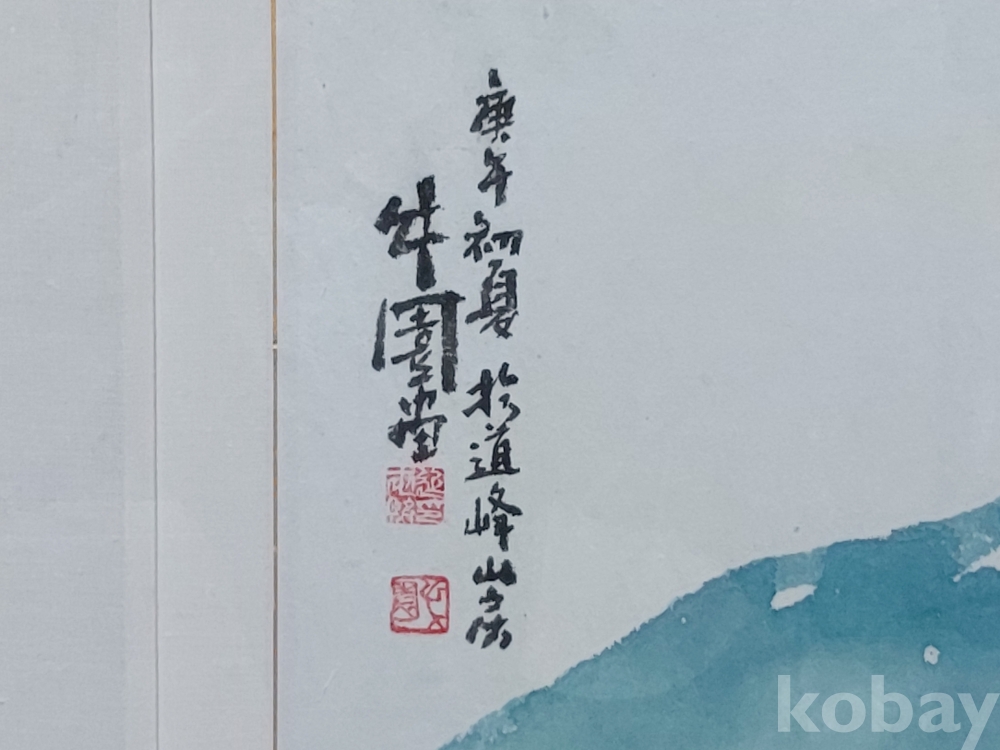 庚午初夏 於道峰山房
竹園堂
kobay